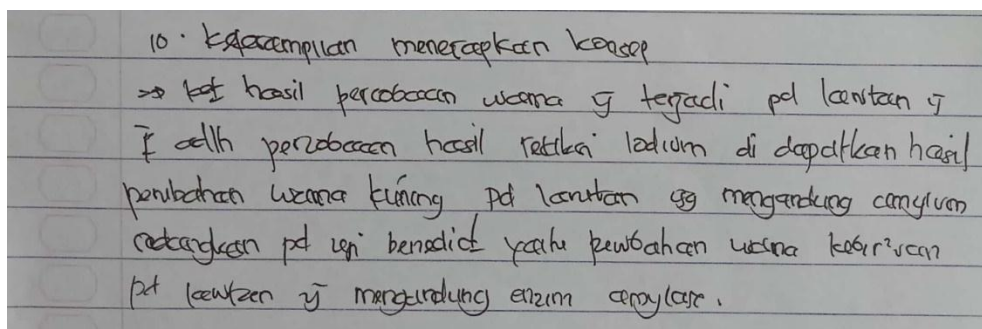 10. Keterampilan menerapkan konsep
→ hasil percobaan warna yg terjadi pd larutan yg
I adlh percobaan hasil reaksi Iodium di dapatkan hasil
perubahan warna kuning pd larutan yg mengandung amylum
sedangkan pd uji benedict yaitu perubahan warna kebir²uan
pd larutan yg mengandung enzim amylase.